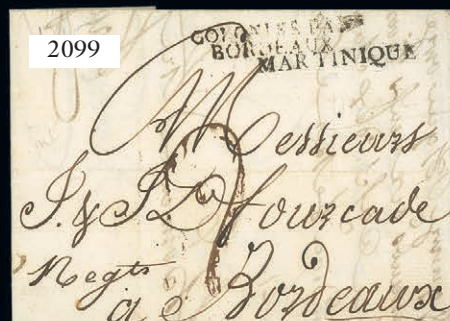 2099
COLONIES PAR
BORDEAUX
MARTINIQUE
Messieurs
J. & J. D. fourcade
Negts
a Bordeaux